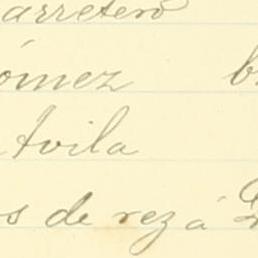 arretero
ómez b
Avila
os de reza